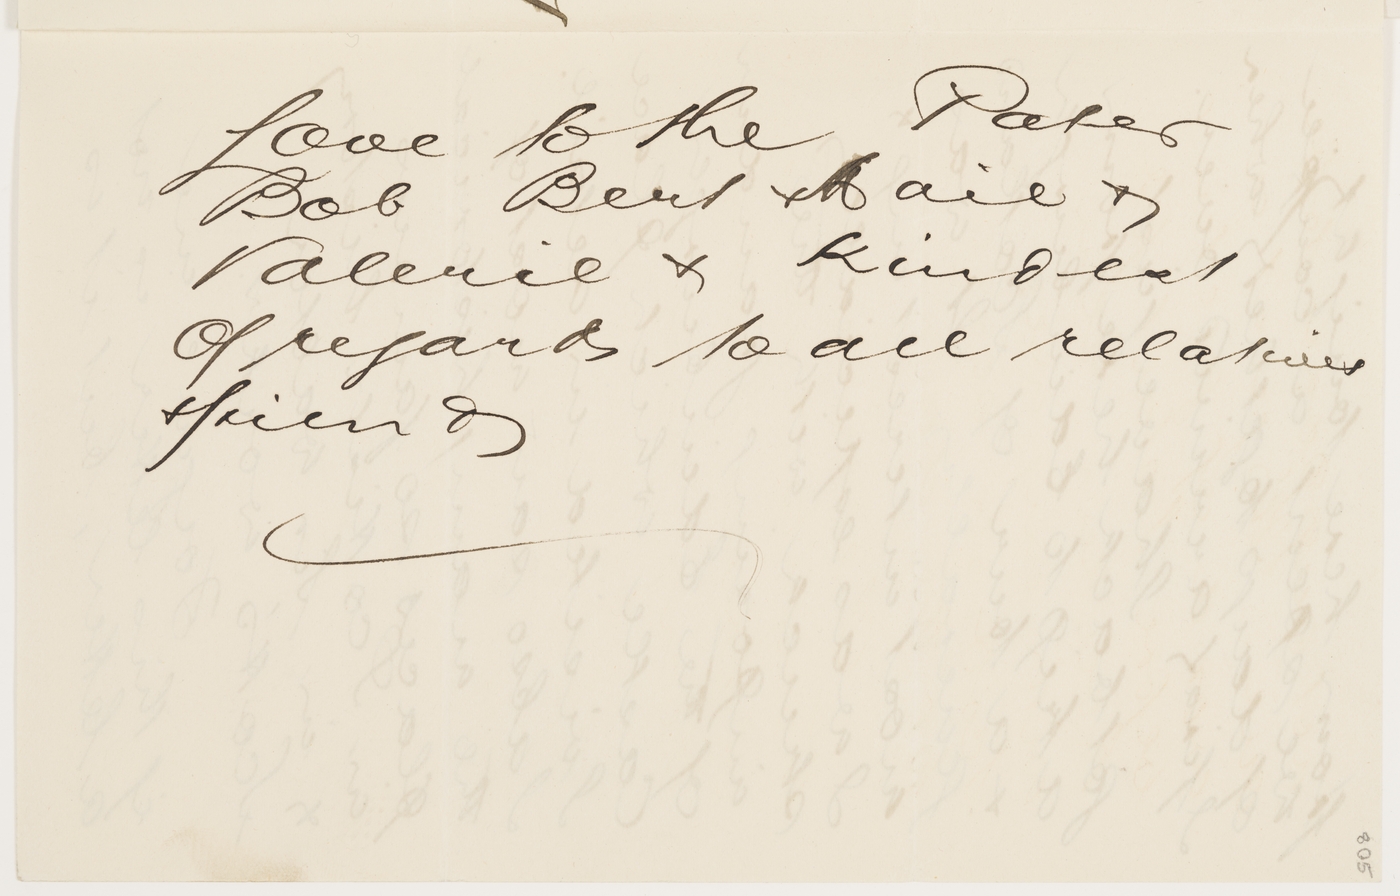 Love to the Pater
Bob Bert & Aaie &
Valerie & Kindest
Of regards to all relatives
& friends
805